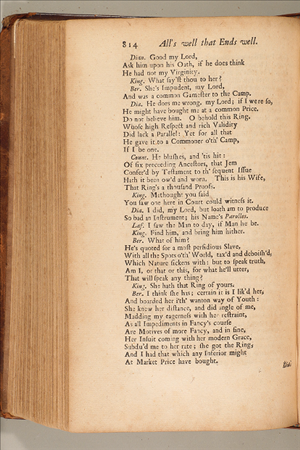 814 All's well that Ends well.
Dian. Good my Lord,
Ask him upon his Oath, if he does think
He had not my Virginity.
King. What say'st thou to her?
Ber. She's Impudent, my Lord,
And was a common Gamester to the Camp.
Dia. He does me wrong, my Lord; if I were so,
He might have bought me at a common Price.
Do not believe him. O behold this Ring,
Whose high Respect and rich Validity
Did lack a Parallel: Yet for all that
He gave it to a Commoner o'th' Camp,
If I be one.
Count. He blushes, and 'tis hit:
Of six preceeding Ancestors, that Jem
Confer'd by Testament to th' sequent Issue
Hath it been ow'd and worn. This is his Wife,
That Ring's a thousand Proofs.
King. Methought you said
You saw one here in Court could witness it.
Dia. I did, my Lord, but loath am to produce
So bad an Instrument; his Name's Parolles.
Laf. I saw the Man to day, if Man he be.
King. Find him, and bring him hither.
Ber. What of him?
He's quoted for a most perfidious Slave,
With all the Spots o'th' World, tax'd and debosh'd,
Which Nature sickens with: but to speak truth,
Am I, or that or this, for what he'll utter,
That will speak any thing?
King. She hath that Ring of yours.
Ber. I think she has; certain it is I lik'd her,
And boarded her i'th' wanton way of Youth:
She knew her distance, and did angle of me,
Madding my eagerness with her restraint,
As all Impediments in Fancy's course
Are Motives of more Fancy, and in fine,
Her Insuit coming with her modern Grace,
Subdu'd me to her rate; she got the Ring,
And I had that which any Inferior might
At Market Price have bought.